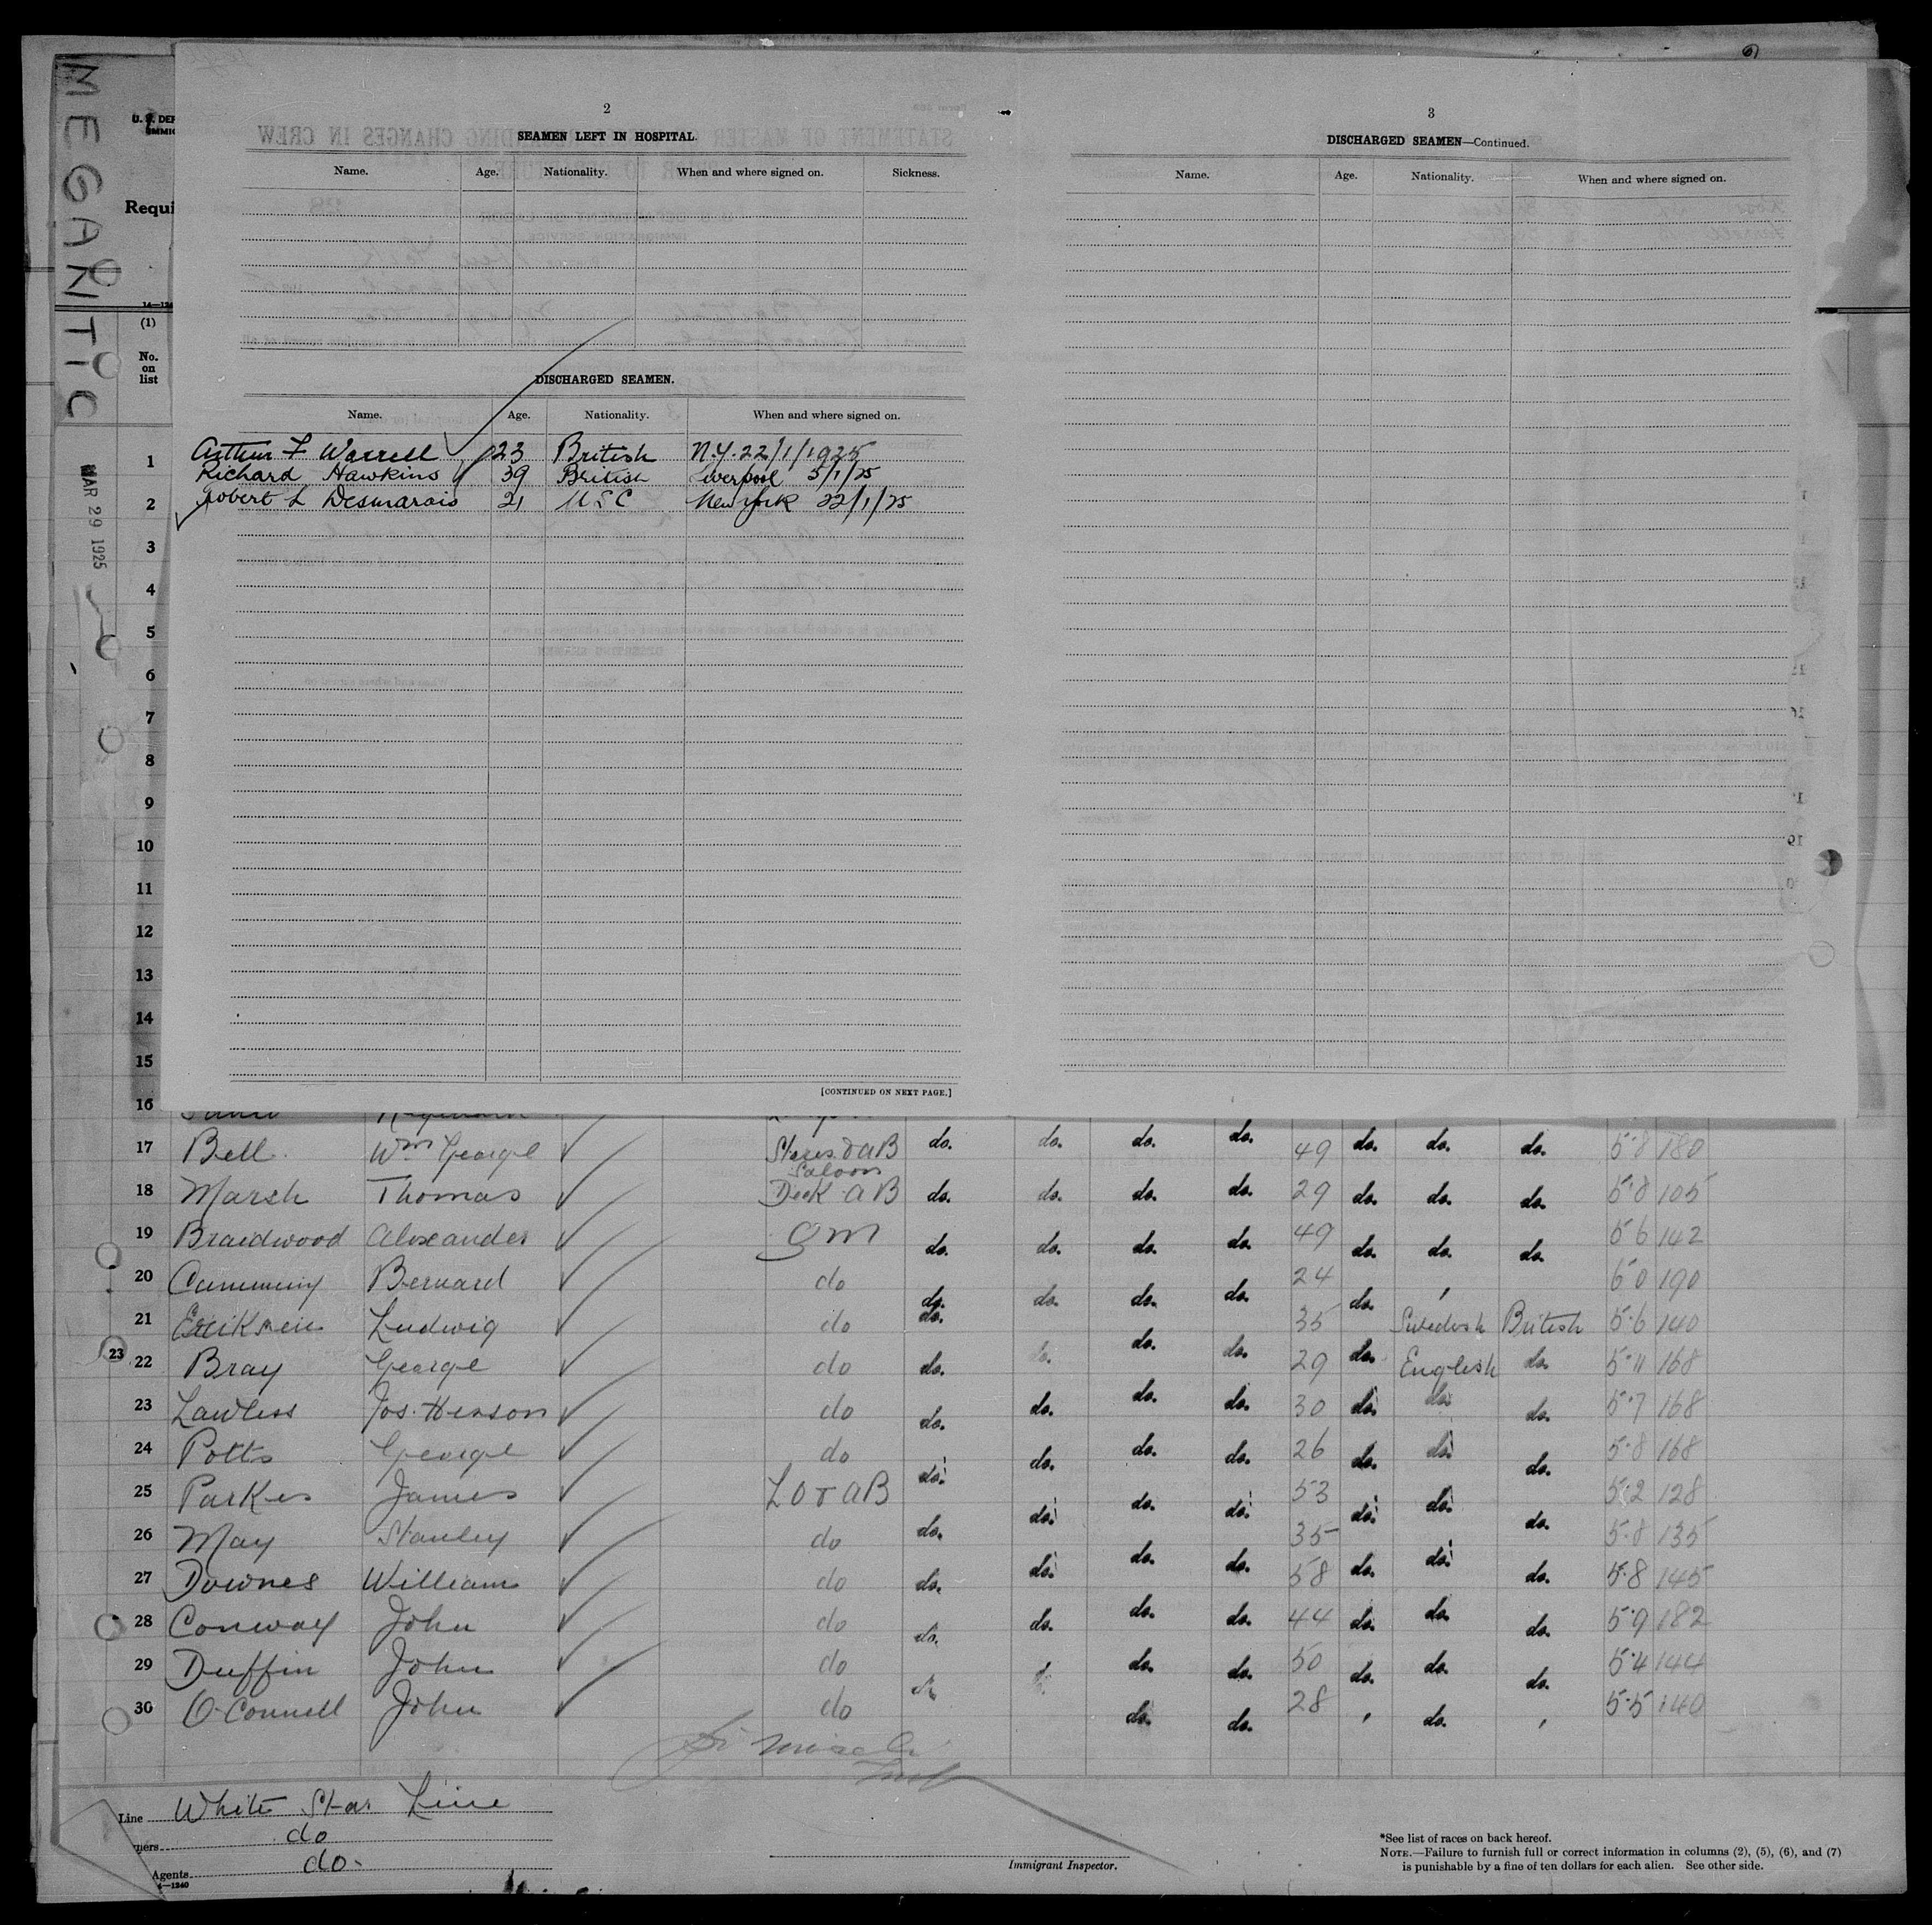 MEGANTIC
MAR 29 1925
U. S. DEP
IMMIG
Requi
(1)
No.
on
list
2
SEAMEN LEFT IN HOSPITAL.
Name. Age. Nationality. When and where signed on. Sickness.
DISCHARGED SEAMEN.
Name. Age. Nationality. When and where signed on.
Arthur F Worrell 23 British N.Y. 22/1/1925
Richard Hawkins 39 British Liverpool 5/1/25
Robert L Desmarais 21 USC New York 22/1/25
[CONTINUED ON NEXT PAGE.]
3
DISCHARGED SEAMEN—Continued.
Name. Age. Nationality. When and where signed on.
1
2
3
4
5
6
7
8
9
10
11
12
13
14
15
16
17 Bell Wm George Steres & AB do. do. do. do. 49 do. do. do. 5-8 180
Saloon
18 Marsh Thomas Deck AB do. do. do. do. 29 do. do. do. 5-8 105
19 Braidwood Alexander QM do. do. do. do. 49 do. do. do. 5-6 142
20 Bernard do do. do. do. do. 24 do. 6-0 190
21 Ludwig do do. 35 Swedish British 5-6 140
23
22 Bray George do do. do. do. do. 29 do. English do. 5-11 168
23 Lawless Jos. Henson do do. do. do. do. 30 do. do. do. 5-7 168
24 Potts George do do. do. do. do. 26 do. do. do. 5-8 168
25 Parkes James LO & AB do. do. do. do. 53 do. do. do. 5-2 128
26 May Stanley do do. do. do. do. 35 do. do. 5-8 135
27 Downes William do do. do. do. do. 58 do. do. do. 5-8 145
28 Conway John do do. do. do. do. 44 do. do. do. 5-9 182
29 Duffin John do do. do. do. do. 50 do. do. do. 5-4 144
30 O'Connell John do do. do. 28 do. 5-5 140
Line White Star Line
ners do
Agents do-
4—1240
Immigrant Inspector.
*See list of races on back hereof.
NOTE.—Failure to furnish full or correct information in columns (2), (5), (6), and (7)
is punishable by a fine of ten dollars for each alien. See other side.